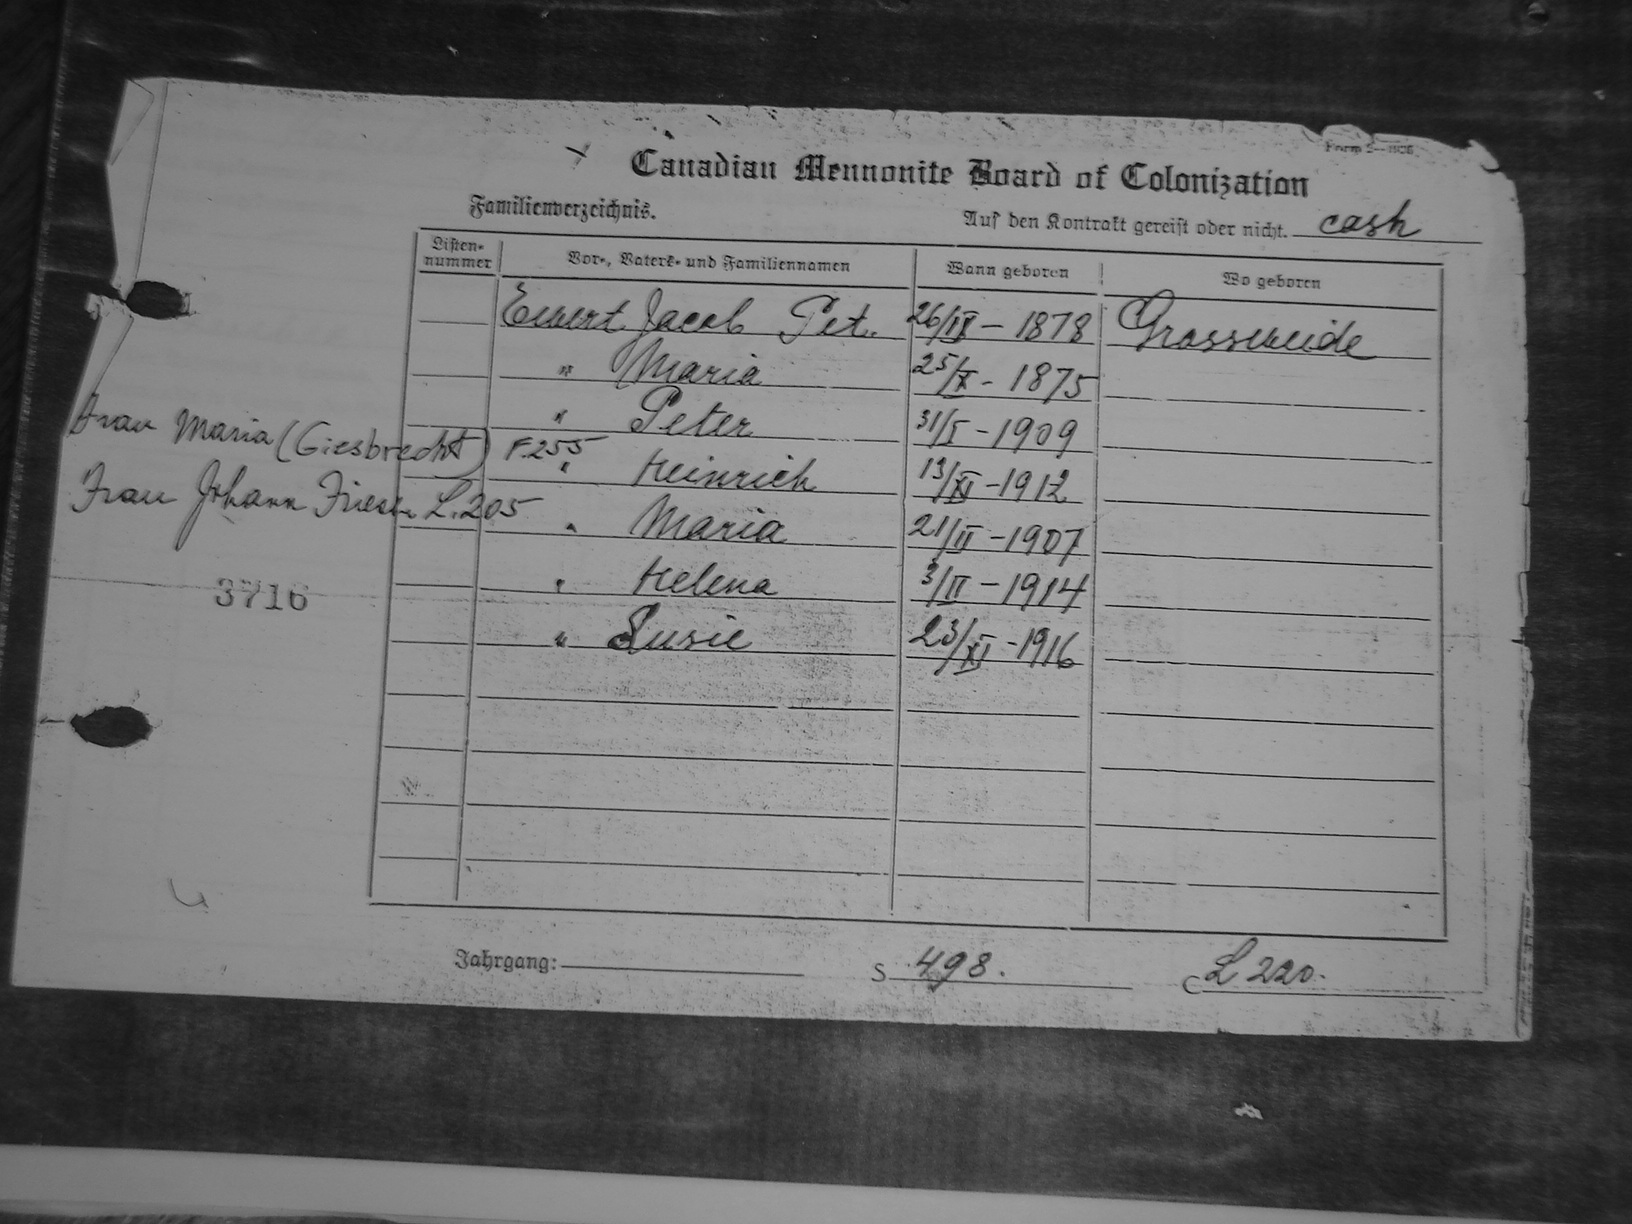 Canadian Mennonite Board of Colonization
Familienverzeichnis.
Auf den Kontrakt gereist oder nicht. cash
Listen-nummer Vor-, Vaters- und Familiennamen Wann geboren Wo geboren
Ewert Jacob Pet. 26/IX - 1878 Grossweide
" Maria 25/X - 1875
" Peter 31/I - 1909
Frau Maria (Giesbrecht) F.255
" Heinrich 13/XI - 1912
Frau Johann Friesen L.205
" Maria 21/II - 1907
" Helena 3/II - 1914
3716
" Susie 23/XI - 1916
Jahrgang: S 498. C L 220.